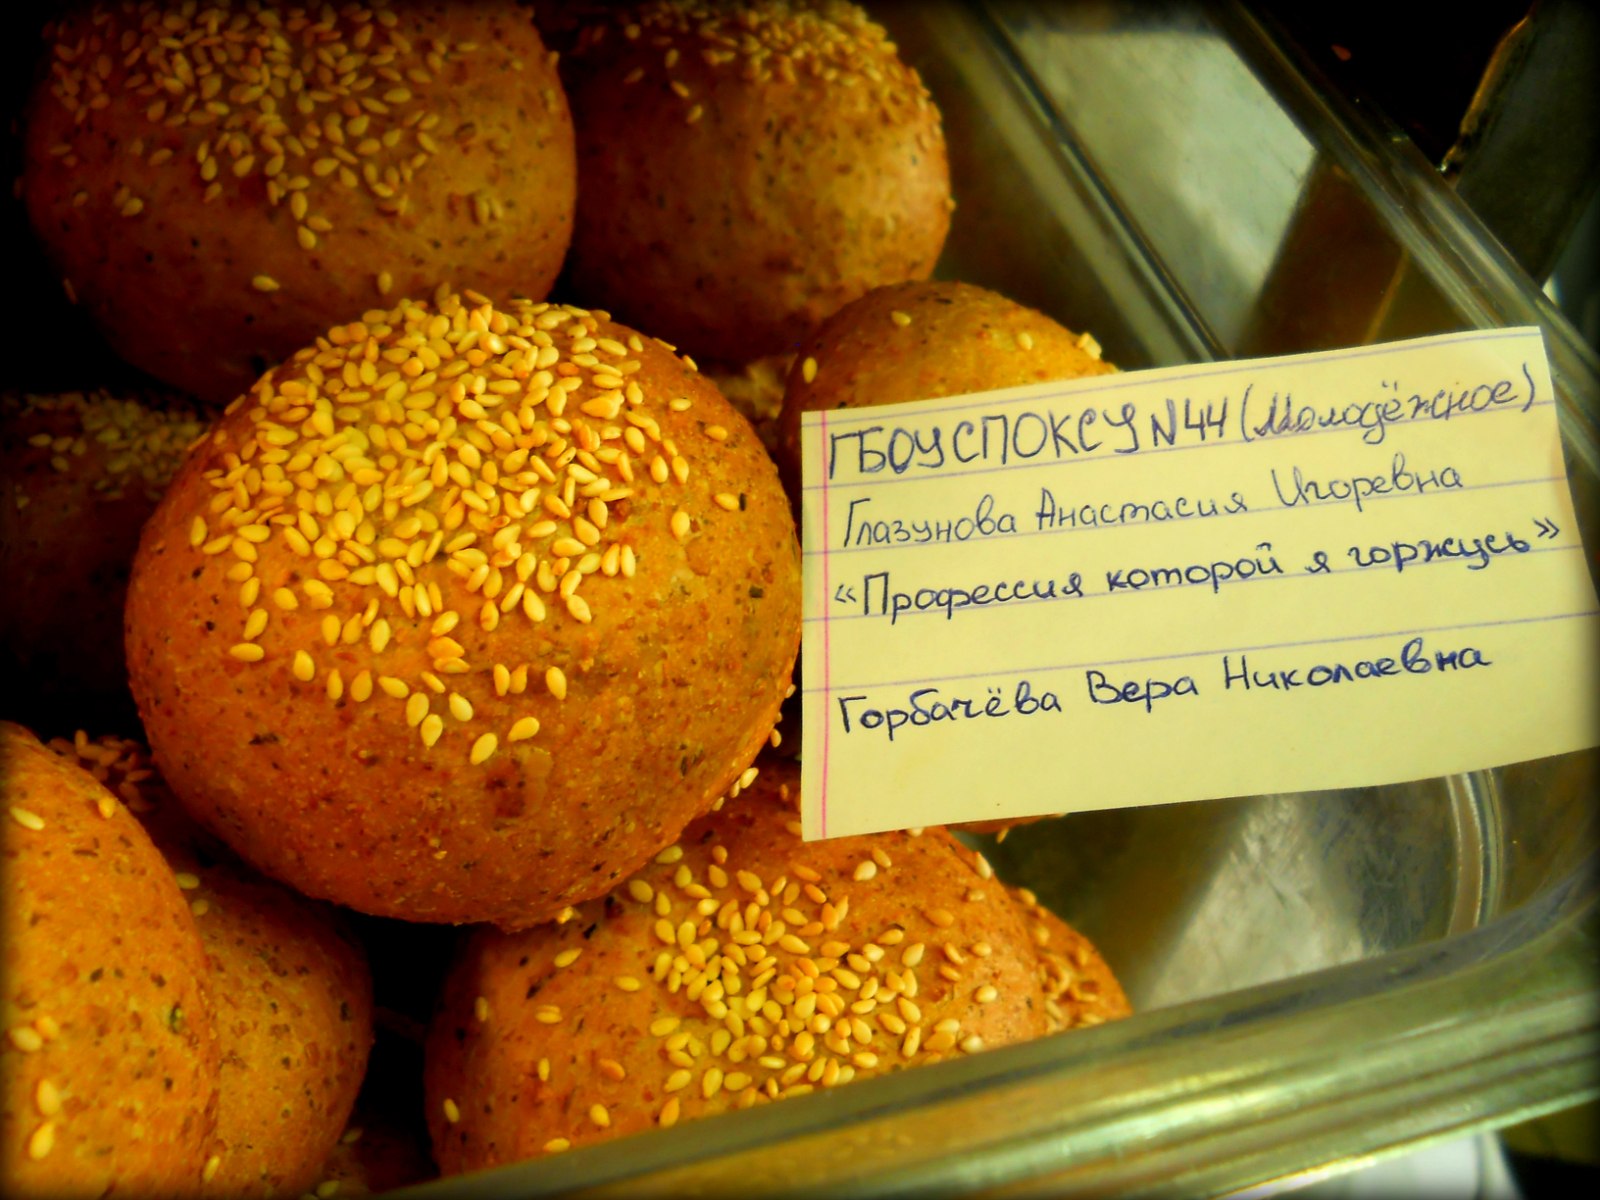 ГБОУСПОКСУ N44 (Молодёжное)
Глазунова Анастасия Игоревна
«Профессия которой я горжусь»
Горбачёва Вера Николаевна